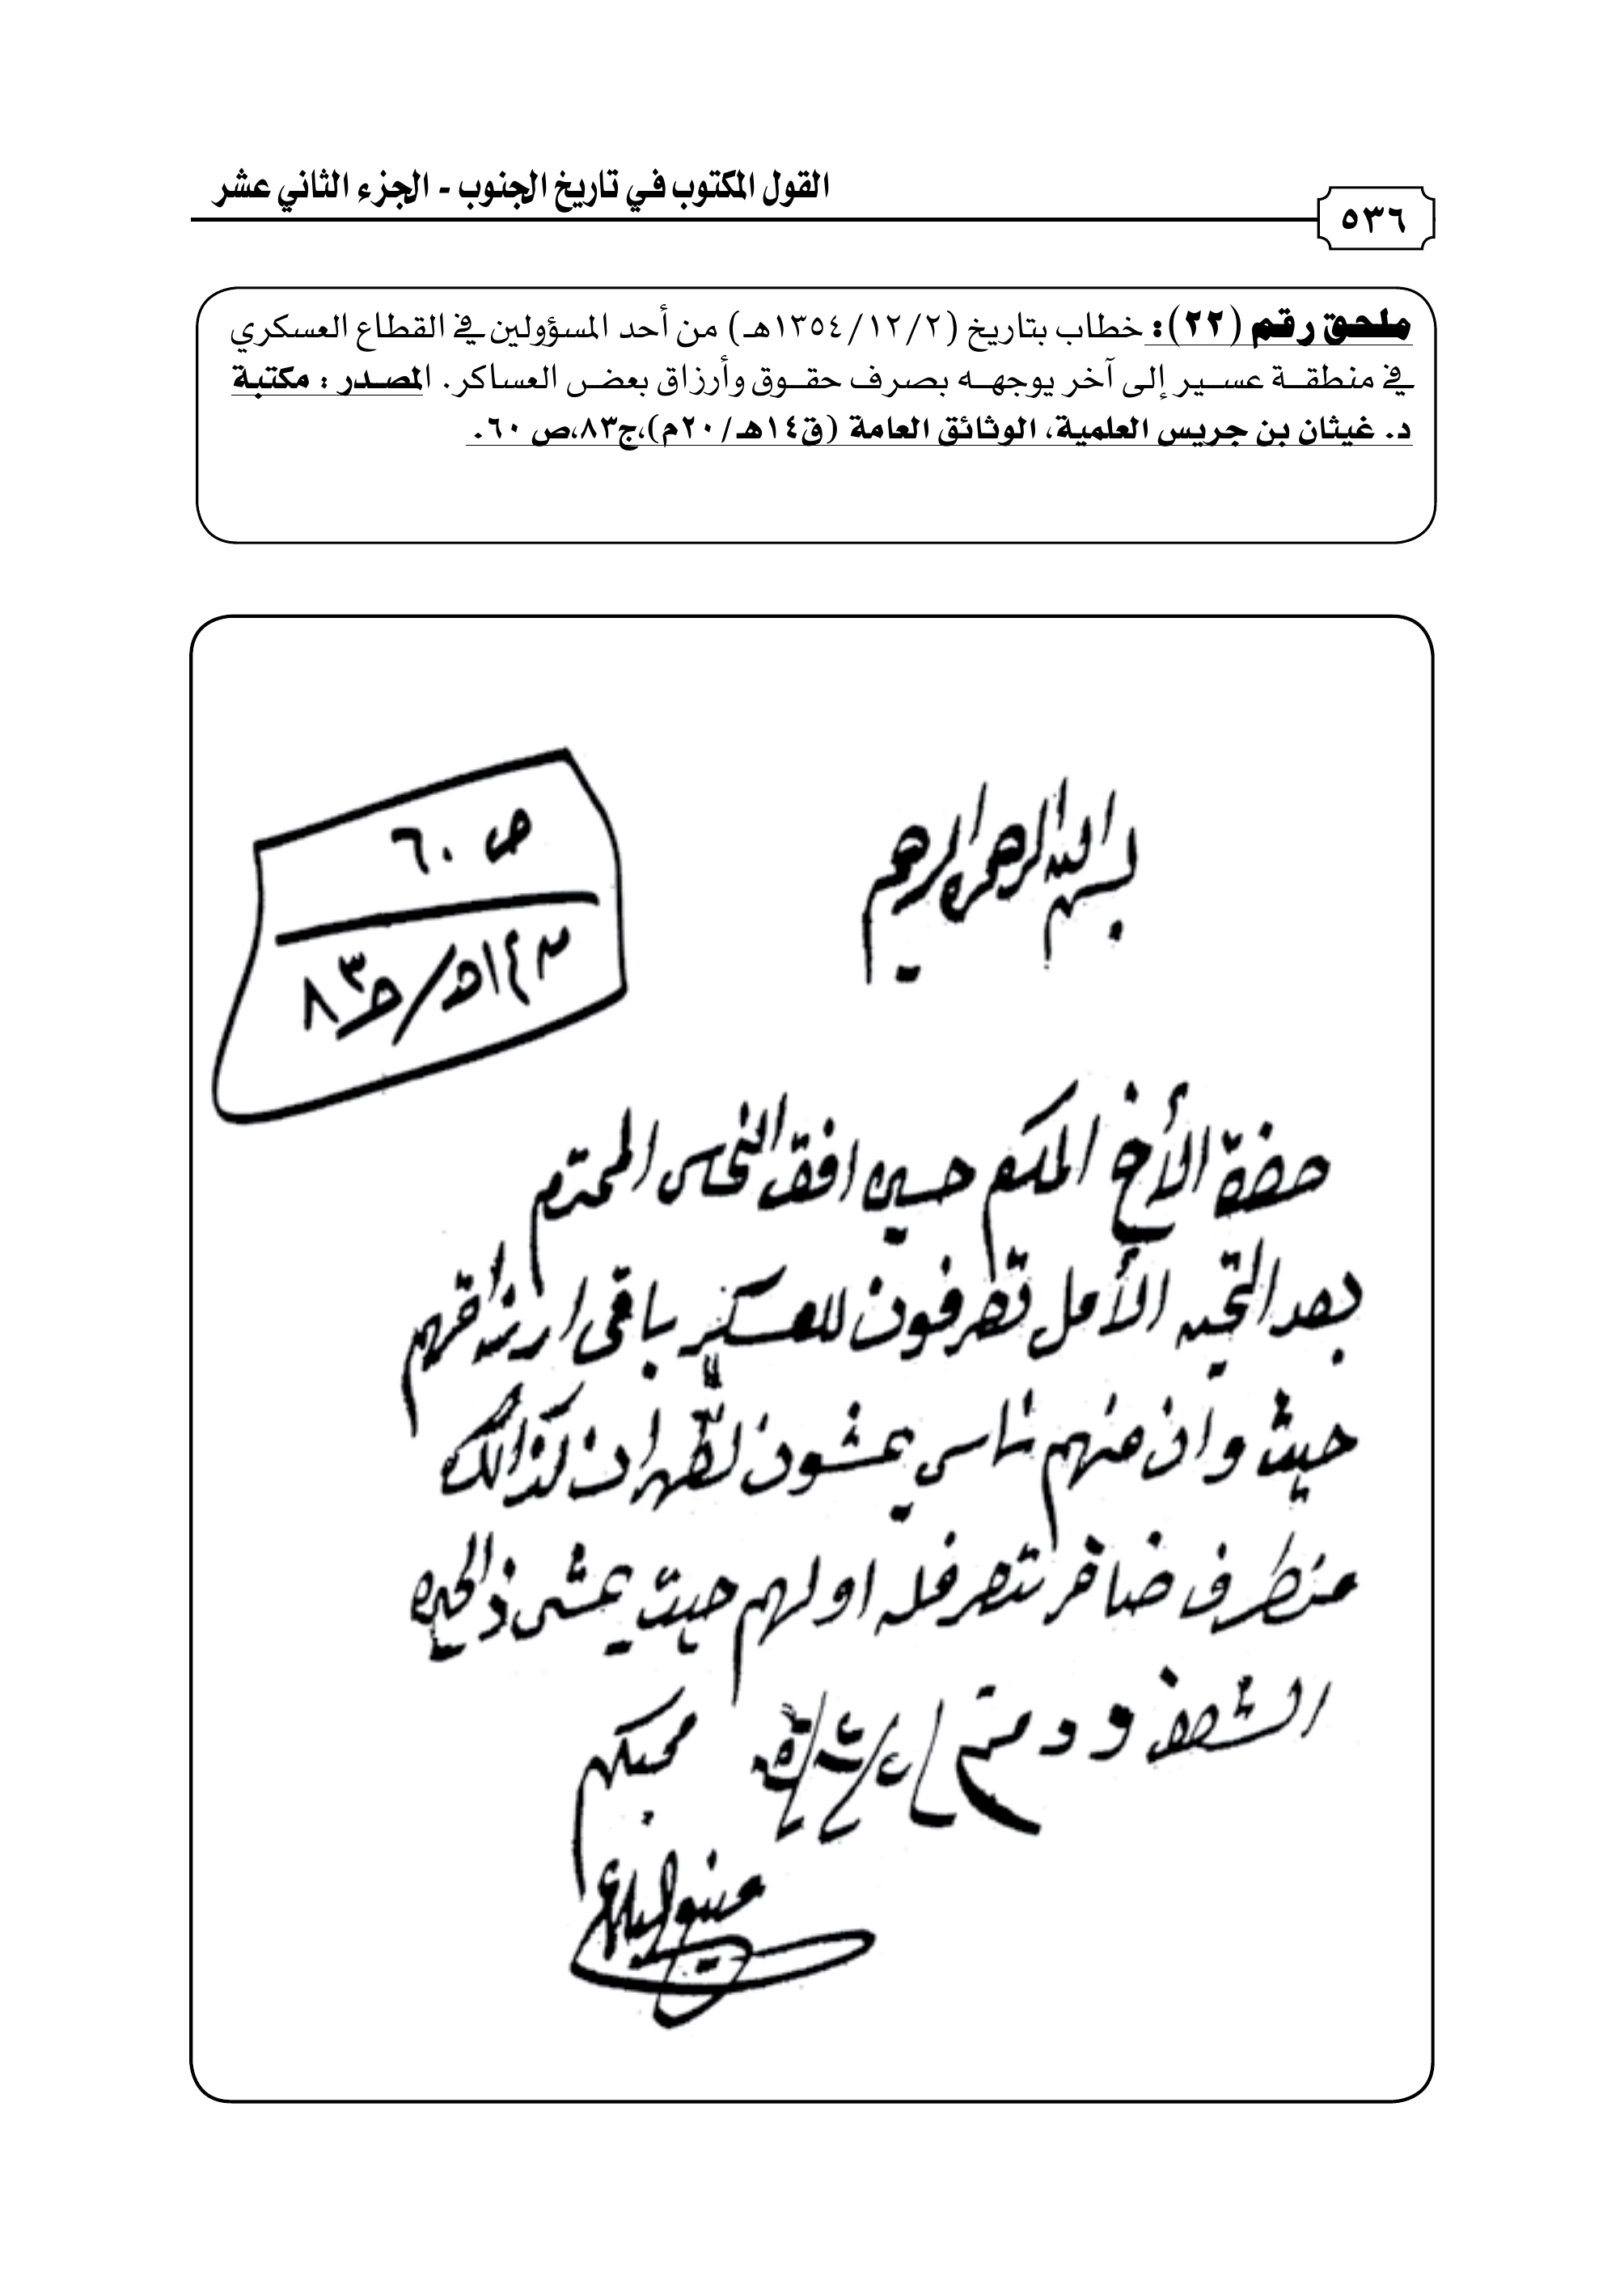 القول المكتوب في تاريخ الجنوب - الجزء الثاني عشر
٥٣٦
ملحق رقم (٢٢): خطاب بتاريخ (١٣٥٤/١٢/٢هـ) من أحد المسؤولين في القطاع العسكري
في منطقة عسير إلى آخر يوجهه بصرف حقوق وأرزاق بعض العساكر. المصدر : مكتبة
د. غيثان بن جريس العلمية، الوثائق العامة (ق١٤هـ/٢٠م)،ج٨٣،ص ٦٠.
بسم الله الرحمن الرحيم
ص ٦٠
١٤هـ/ج٨٣
حضرة الأخ المكرم حسين افق النحاس المحترم
بعد التحيه الأمل تصرفون للعسكر باقي ارزاقهم
حيث وان منهم ناس يمشون لظهران كذالك
ضافر تصرف له او لهم حيث يمشي
ودمتم
محبكم